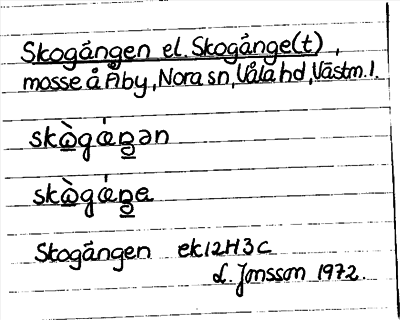 Skogången el. Skogånge(t),
mosse å Åby, Nora sn, Våla hd, Västm. l.
skògáŋən
skògáŋe
Skogången ek 12H3c
L. Jonsson 1972.